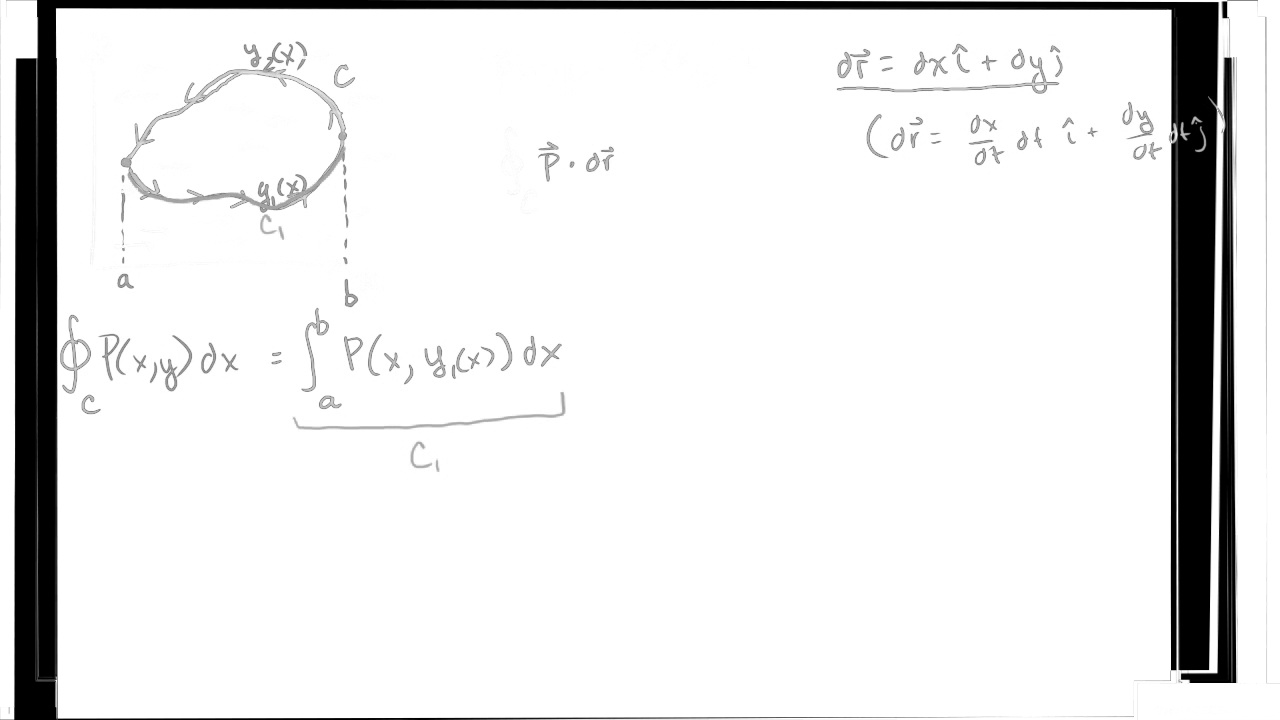 y₂(x)
C
y₁(x)
C₁
a
b
P⃗ · dr⃗
dr⃗ = dx î + dy ĵ
(dr⃗ = dx/dt dt î + dy/dt dt ĵ)
∮_C P(x,y) dx = ∫_a^b P(x, y₁(x)) dx
C₁